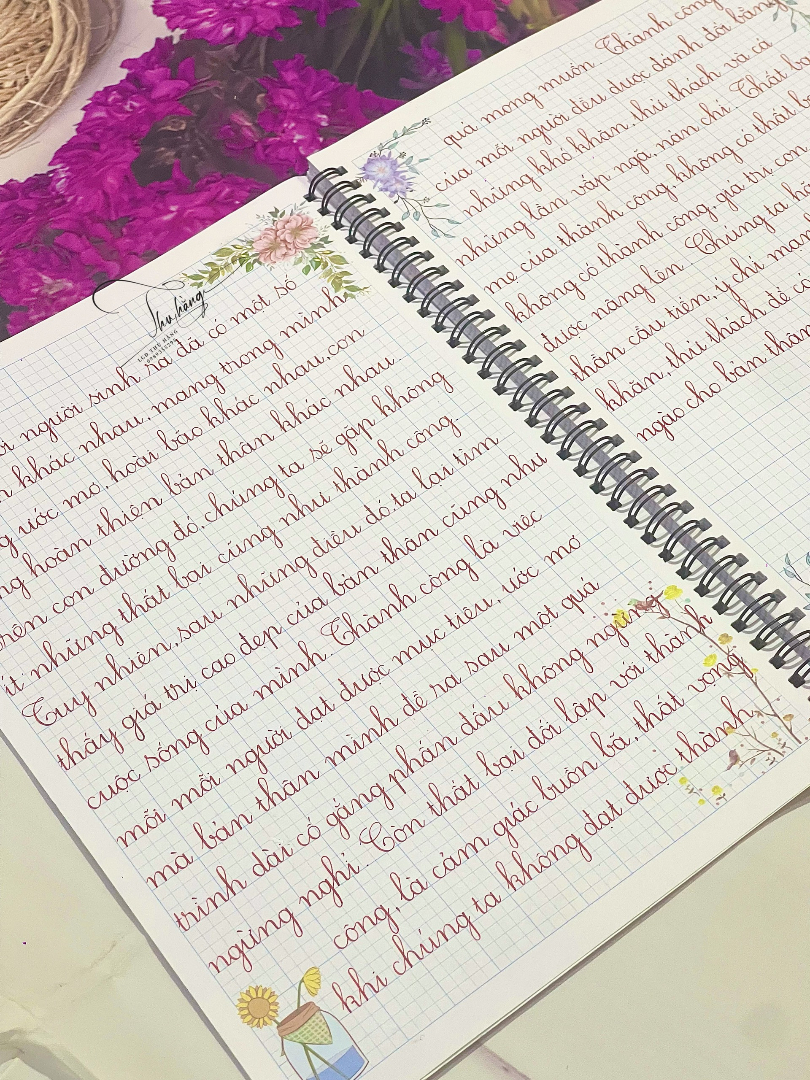 Thu hằng
LCĐ THU HẰNG
người sinh ra đã có một số
khác nhau, mang trong mình
ước mơ, hoài bão khác nhau, con
hoàn thiện bản thân khác nhau.
trên con đường đó, chúng ta sẽ gặp không
ít những thất bại cũng như thành công.
Tuy nhiên, sau những điều đó ta lại tìm
thấy giá trị cao đẹp của bản thân cũng như
cuộc sống của mình. Thành công là việc
mỗi mỗi người đạt được mục tiêu, ước mơ
mà bản thân mình đề ra sau một quá
trình dài cố gắng phấn đấu không ngừng
ngừng nghỉ. Còn thất bại đối lập với thành
công, là cảm giác buồn bã, thất vọng
khi chúng ta không đạt được thành
quả mong muốn. Thành công
của mỗi người đều được đánh đổi bằng
những khó khăn, thử thách và cả
những lần vấp ngã, nản chí. Thất bại
mẹ của thành công, không có thất
không có thành công, giá trị con
được nâng lên. Chúng ta
thần cầu tiến, ý chí
khăn, thử thách để
ngào cho bản thân